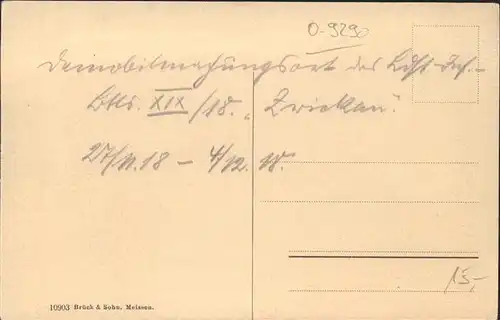 O-9290
Demobilmachungsort des Ldst.-Inf.-
Btls. XIX/18. „Zwickau".
27/11.18 – 4/12.18.
15,-
10903 Brück & Sohn, Meissen.